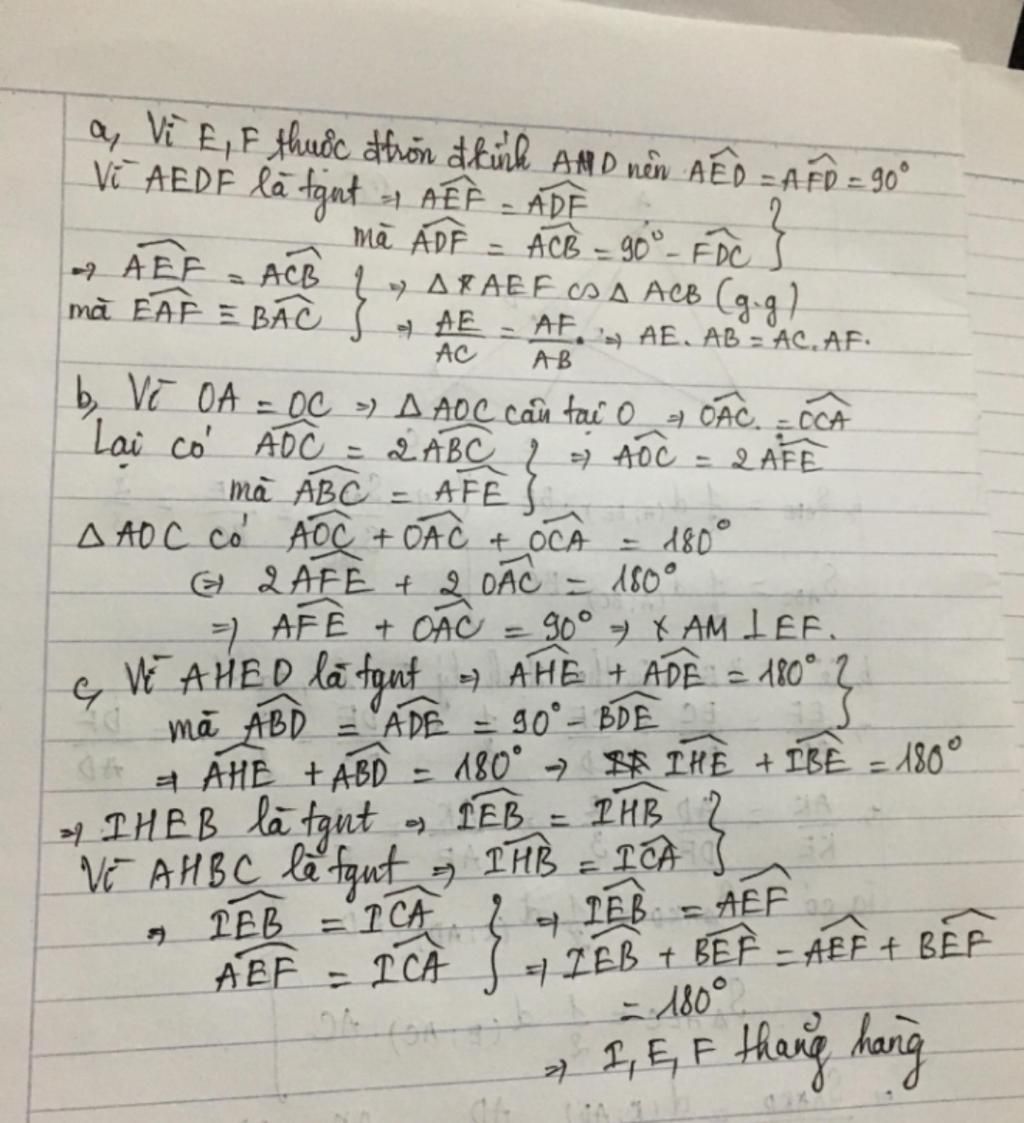 a, Vì E, F thuộc đtròn đkính AMD nên AÊD = AF̂D = 90°
Vì AEDF là tgnt ⇒ AÊF = AD̂F
mà AD̂F = AĈB = 90° - FD̂C }
⇒ AÊF = AĈB } ⇒ Δ AEF ∽ Δ ACB (g.g)
mà EÂF ≡ BÂC } ⇒ AE/AC = AF/AB ⇒ AE. AB = AC. AF.
b, Vì OA = OC ⇒ Δ AOC cân tại O ⇒ OÂC = OĈA
Lại có AÔC = 2AB̂C } ⇒ AÔC = 2AF̂E
mà AB̂C = AF̂E }
Δ AOC có AÔC + OÂC + OĈA = 180°
(⇒ 2AF̂E + 2 OÂC = 180°
⇒ AF̂E + OÂC = 90° ⇒ AM ⊥ EF.
c, Vì AHED là tgnt ⇒ AĤE + AD̂E = 180° }
mà AB̂D = AD̂E = 90° - BD̂E }
⇒ AĤE + AB̂D = 180° → IĤE + IB̂E = 180°
⇒ IHEB là tgnt ⇒ IÊB = IĤB }
Vì AHBC là tgnt ⇒ IĤB = IĈA }
⇒ IÊB = IĈA } ⇒ IÊB = AÊF
AÊF = IĈA } ⇒ IÊB + BÊF = AÊF + BÊF
= 180°
⇒ I, E, F thẳng hàng